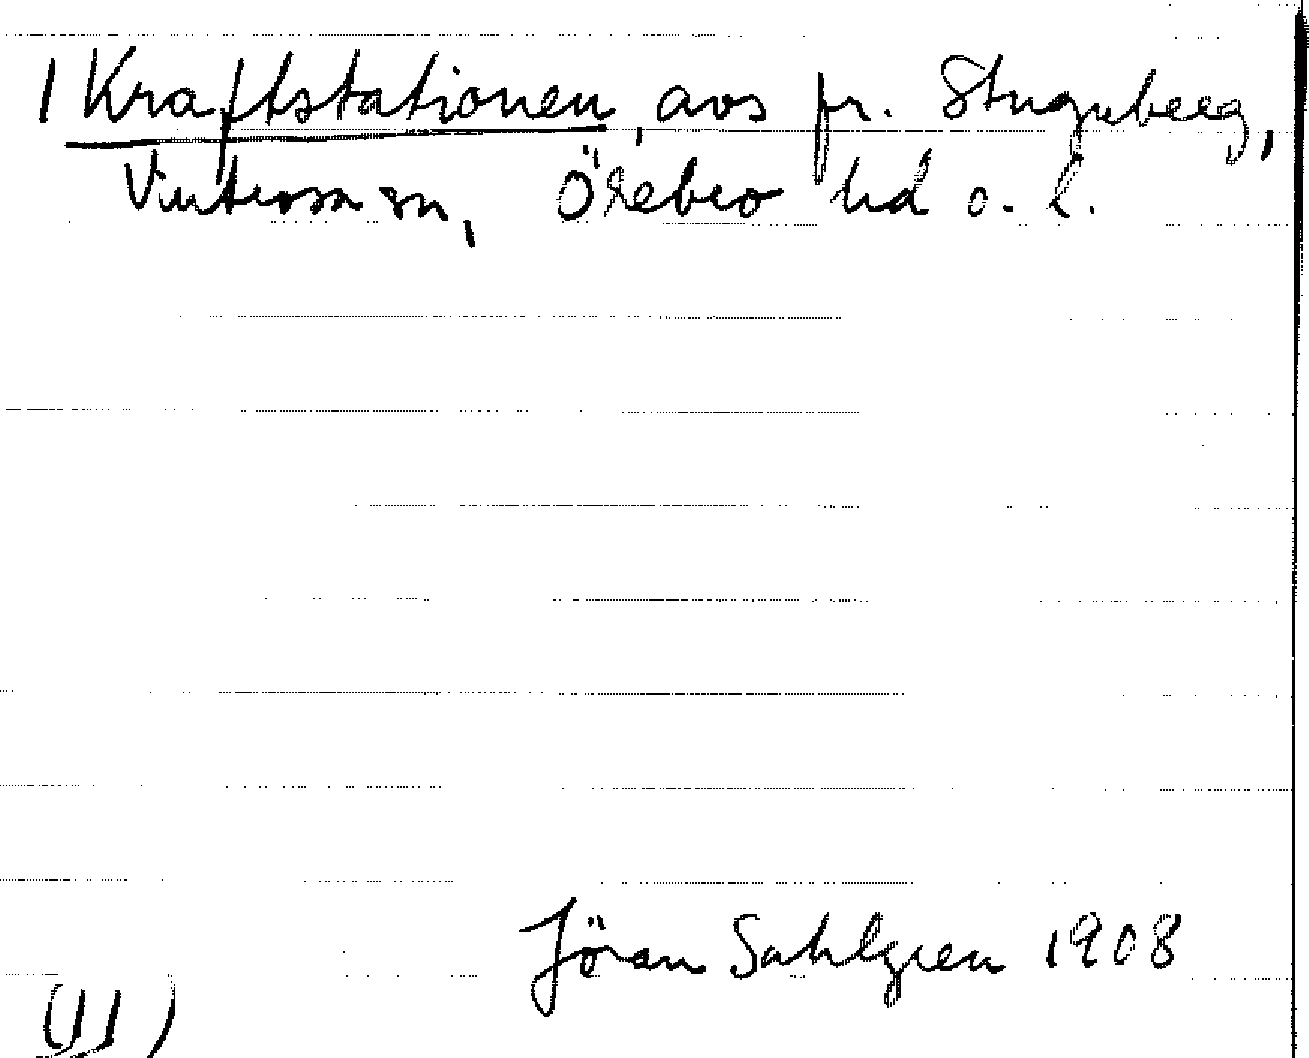 1 Kraftstationen, avs fr. Stuguberg,
Vintrosa sn, Örebro hd o. l.
Jöran Sahlgren 1908
(II)